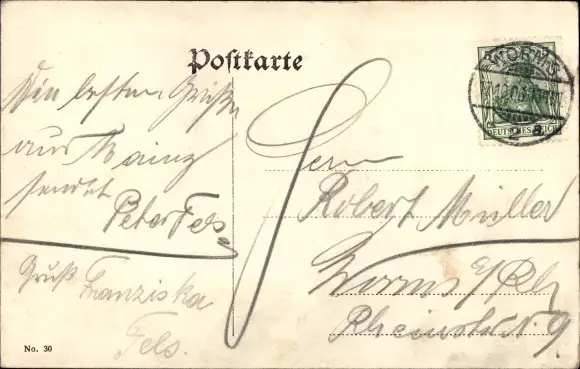 Postkarte
WORMS
DEUTSCHES REICH
Die besten Grüße
aus Mainz
sendet
Peter Fels
Gruß Franziska
Fels.
Herrn
Robert Müller
Worms a/Rh
No. 30